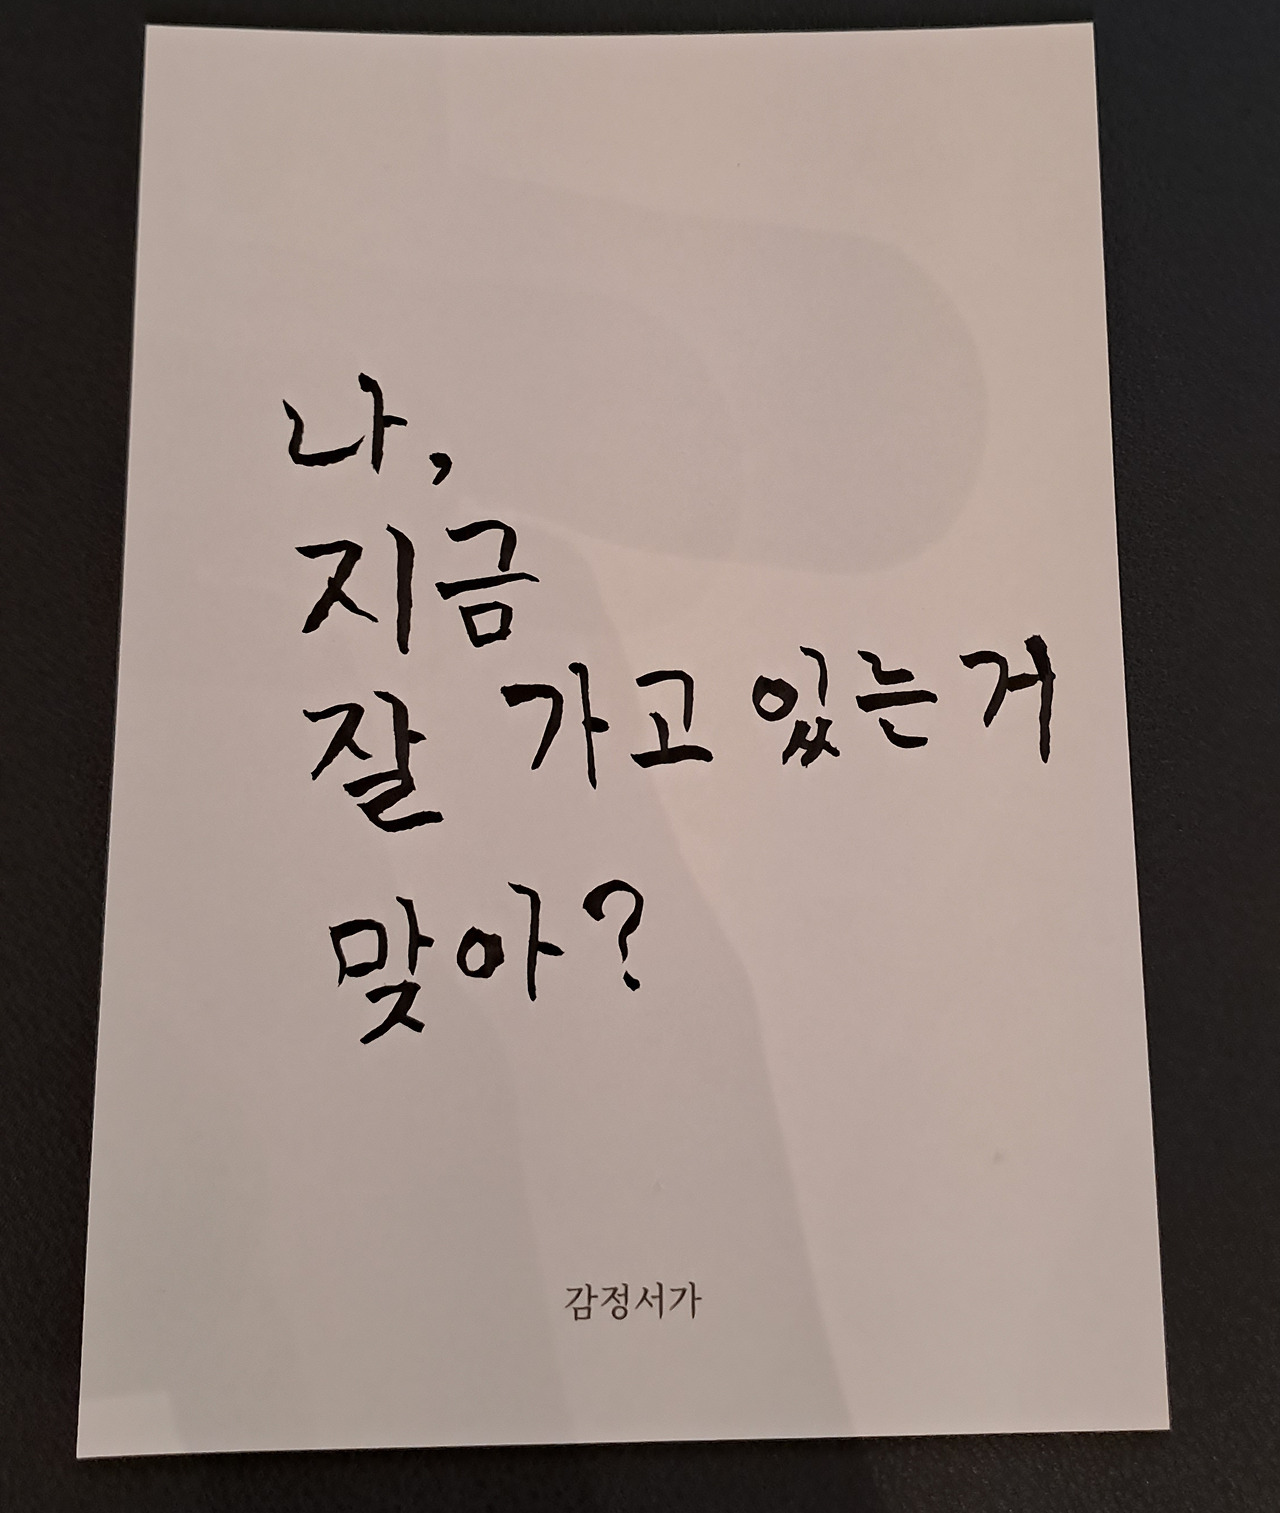 나,
지금
잘 가고 있는거
맞아?
감정서가